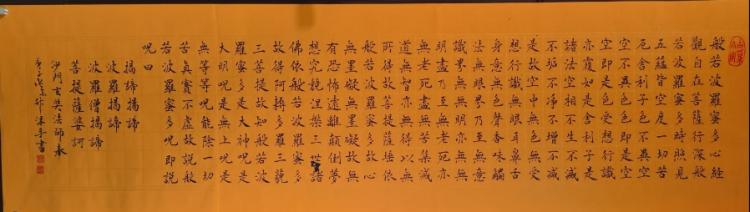 般若波羅蜜多心経
觀自在菩薩行深般
若波羅蜜多時照見
五蘊皆空度一切苦
厄舍利子色不異空
空不異色色即是空
空即是色受想行識
亦復如是舍利子是
諸法空相不生不滅
不垢不淨不增不減
是故空中無色無受
想行識無眼耳鼻舌
身意無色聲香味觸
法無眼界乃至無意
識界無無明亦無無
明盡乃至無老死亦
無老死盡無苦集滅
道無智亦無得以無
所得故菩提薩埵依
般若波羅蜜多故心
無罣礙無罣礙故無
有恐怖遠離顛倒夢
想究竟涅槃三世諸
佛依般若波羅蜜多
故得阿耨多羅三藐
三菩提故知般若波
羅蜜多是大神呪是
大明呪是無上呪是
無等等呪能除一切
苦真實不虛故說般
若波羅蜜多呪即說
呪曰
揭諦揭諦
波羅揭諦
波羅僧揭諦
菩提薩婆訶
沙門玄奘法師奉
庚子 手書